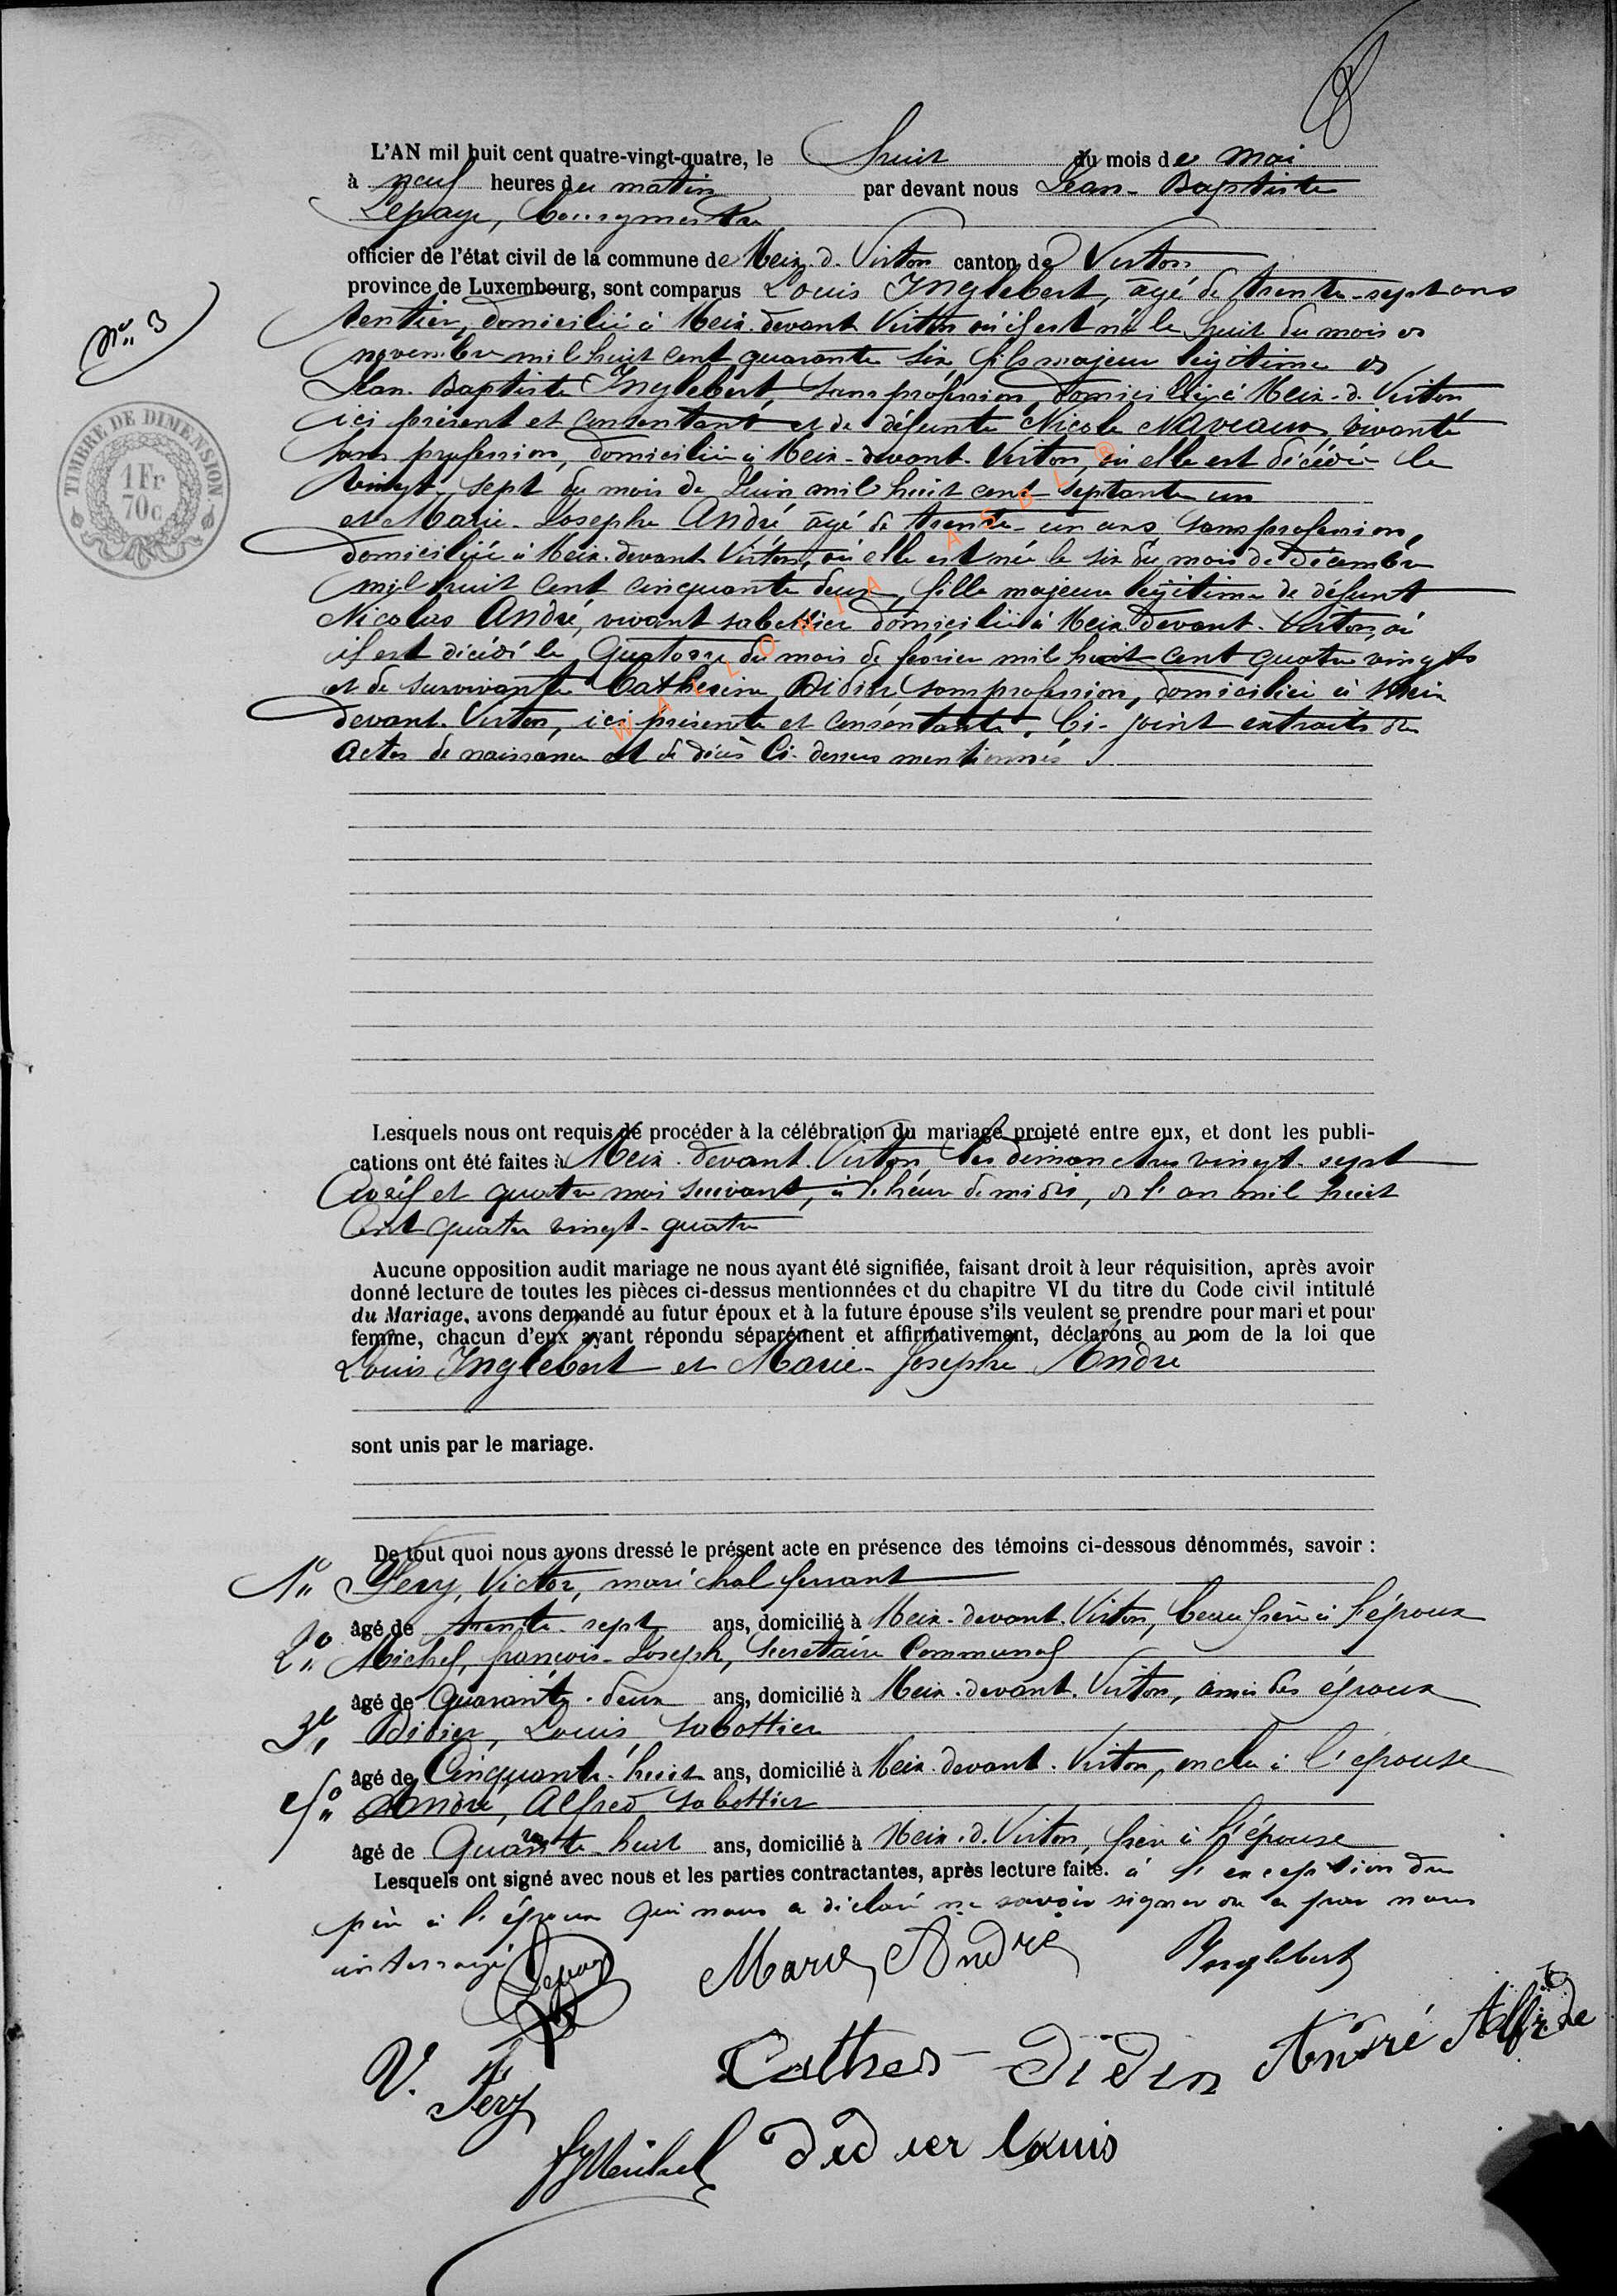 8
L'AN mil huit cent quatre-vingt-quatre, le huit du mois de mai
à neuf heures du matin par devant nous Jean-Baptiste
Lepage, bourgmestre
officier de l'état civil de la commune de Meix-d-Virton canton de Virton
province de Luxembourg, sont comparus Louis Inglebert, âgé de trente-sept ans
No 3
rentier, domicilié à Meix-devant-Virton où il est né le huit du mois de
novembre mil huit cent quarante six, fils majeur légitime de
Jean-Baptiste Inglebert, sans profession, domicilié à Meix-d-Virton
ici présent et consentant et de défunte Nicole Naveaux, vivante
sans profession, domiciliée à Meix-devant-Virton, où elle est décédée le
vingt-sept du mois de Juin mil huit cent septante un
et Marie-Josephe André âgé de trente-un ans sans profession,
domiciliée à Meix-devant Virton, où elle est née le six du mois de décembre
mil huit cent cinquante deux, fille majeure légitime de défunt
Nicolas André, vivant sabottier domicilié à Meix-devant-Virton, où
il est décédé le Quatorze du mois de février mil huit cent quatre vingts
et de survivante Catherine Didier, sans profession, domiciliée à Meix
devant-Virton, ici présente et consentante. Ci-joint extraits des
actes de naissance et de décès Ci-dessus mentionnés
TIMBRE DE DIMENSION
1 Fr
70c
WALLONIA ASBL ®
Lesquels nous ont requis de procéder à la célébration du mariage projeté entre eux, et dont les publi-
cations ont été faites à Meix-devant-Virton, les dimanches vingt-sept
avril et quatre mai suivant, à l'heure de midi, de l'an mil huit
Cent quatre vingt-quatre
Aucune opposition audit mariage ne nous ayant été signifiée, faisant droit à leur réquisition, après avoir
donné lecture de toutes les pièces ci-dessus mentionnées et du chapitre VI du titre du Code civil intitulé
du Mariage, avons demandé au futur époux et à la future épouse s'ils veulent se prendre pour mari et pour
femme, chacun d'eux ayant répondu séparément et affirmativement, déclarons au nom de la loi que
Louis Inglebert et Marie-Josephe André
sont unis par le mariage.
De tout quoi nous avons dressé le présent acte en présence des témoins ci-dessous dénommés, savoir :
1o Fery, Victor, maréchal ferrant
âgé de trente-sept ans, domicilié à Meix-devant-Virton, beau frère à l'époux
2o Michel, françois-Joseph, Secretaire Communal
âgé de Quarante-deux ans, domicilié à Meix-devant-Virton, ami des époux
3o Didier, Louis, sabottier
âgé de Cinquante-huit ans, domicilié à Meix-devant-Virton, oncle à l'épouse
4o André, Alfred sabottier
âgé de Quarante-huit ans, domicilié à Meix-d-Virton, frère à l'épouse
Lesquels ont signé avec nous et les parties contractantes, après lecture faite. à l'exception du
père à l'époux qui nous a déclaré ne savoir signer de ce par nous
interrogé
Lepage Marie André Inglebert
V. Féry Cather Didier André Alfrede
FJ Michel didier Louis